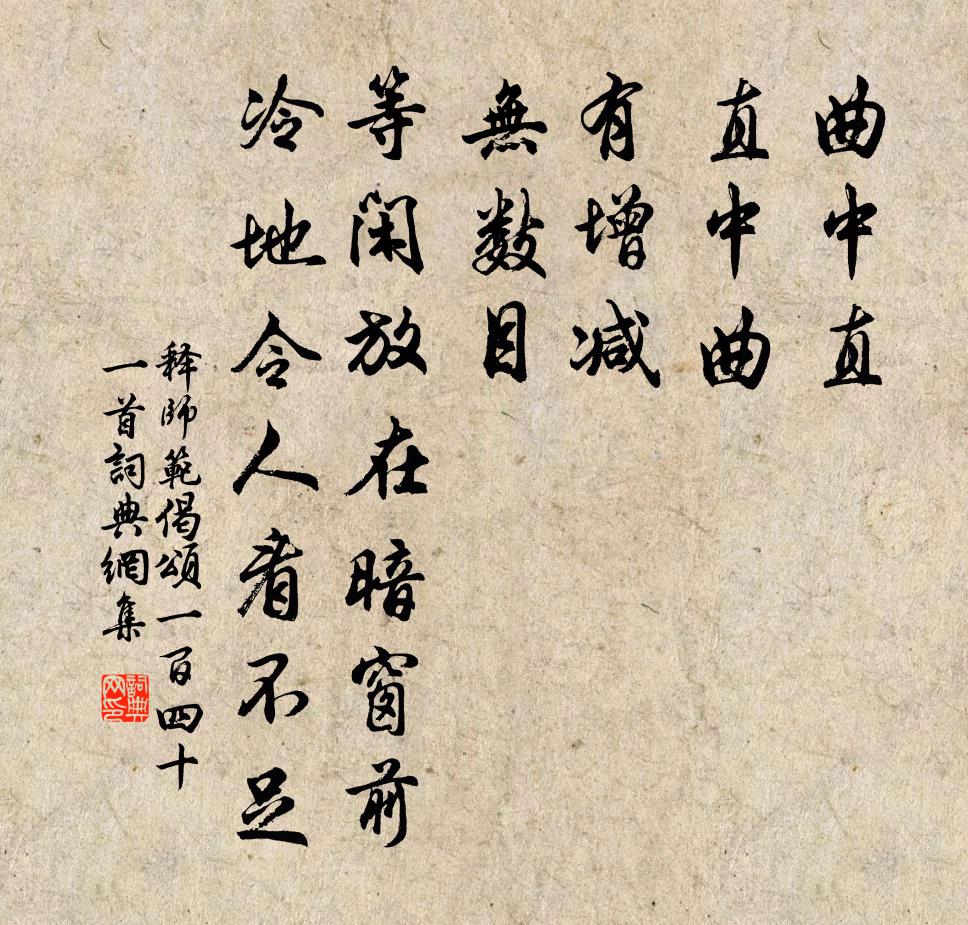 曲中直
直中曲
有增减
無數目
等閑放在暗窗前
冷地令人看不足
释師範偈頌一百四十
一首詞典網集
詞典
网印